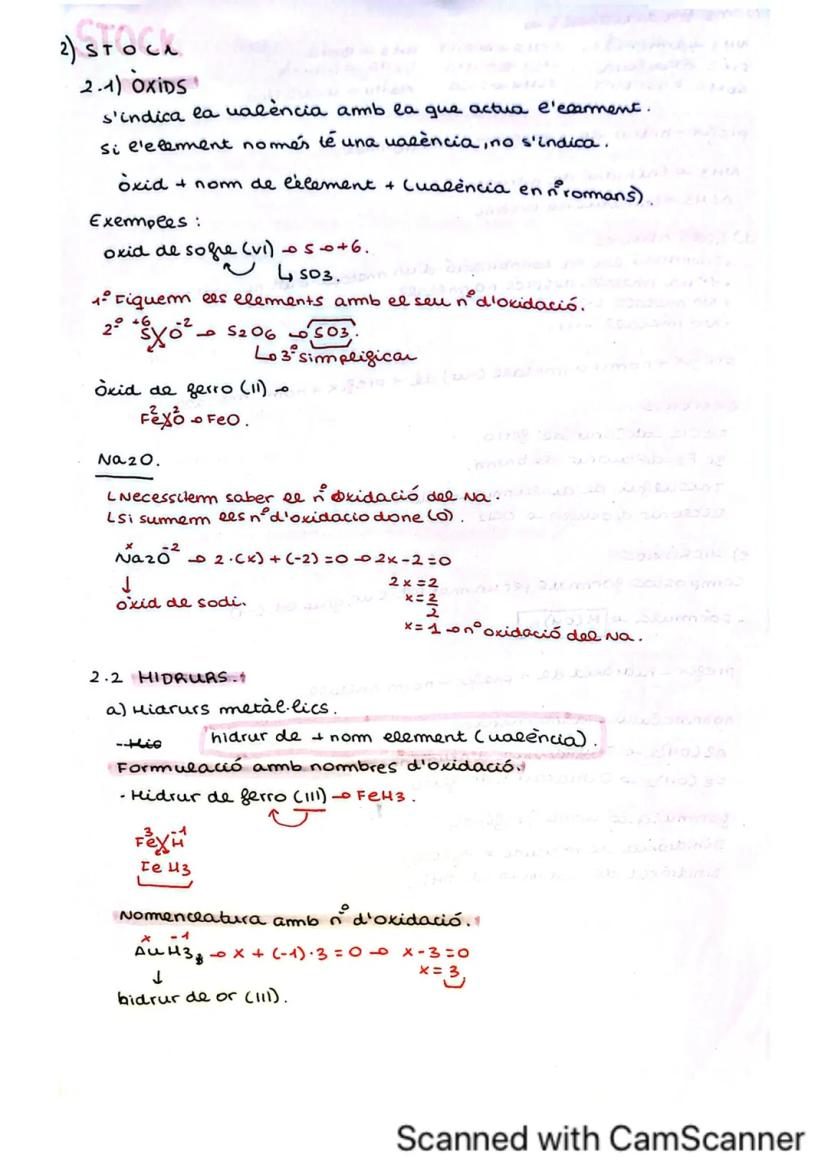 STOCK
2) STOCK
2.1) ÒXIDS
s'indica la valència amb la que actua l'element.
Si l'element només té una valència, no s'indica.
òxid + nom de l'element + (valència en nº romans).
Exemples:
oxid de sofre (VI) → S → +6.
↳ SO3.
1º Fiquem els elements amb el seu nº d'oxidació.
2º +6 S O -2 → S2O6 → SO3.
↳ 3º simplificar
òxid de ferro (II) →
Fe 2 O 2 → FeO.
Na2O.
↳ Necessitem saber el nº oxidació del Na.
↳ Si sumem els nº d'oxidacio done (0).
x Na2O -2 → 2·(x) + (-2) = 0 → 2x - 2 = 0
↓ 2x = 2
òxid de sodi. x = 2/2
x = 1 → nº oxidació del Na.
2.2 HIDRURS.
a) Hidrurs metàl·lics.
- Hid hidrur de + nom element (valència).
Formulació amb nombres d'oxidació.
- Hidrur de ferro (III) → FeH3.
Fe 3 H -1
FeH3
Nomenclatura amb nº d'oxidació.
x -1
AuH3 → x + (-1)·3 = 0 → x - 3 = 0
↓ x = 3
hidrur de or (III).
Scanned with CamScanner